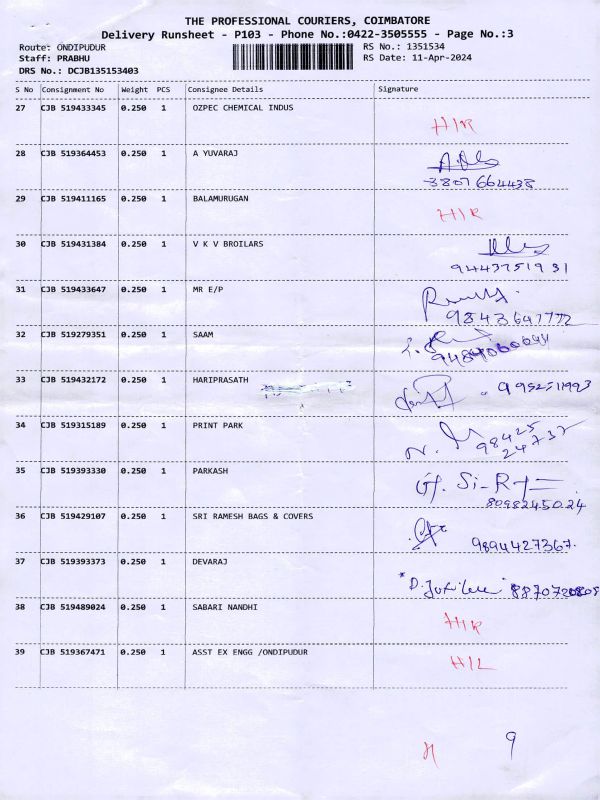 THE PROFESSIONAL COURIERS, COIMBATORE
Delivery Runsheet - P103 - Phone No.:0422-3505555 - Page No.:3
Route: ONDIPUDUR RS No.: 1351534
Staff: PRABHU RS Date: 11-Apr-2024
DRS No.: DCJB135153403
S No Consignment No Weight PCS Consignee Details Signature
27 CJB 519433345 0.250 1 OZPEC CHEMICAL INDUS
H/R
28 CJB 519364453 0.250 1 A YUVARAJ
3807 664438
29 CJB 519411165 0.250 1 BALAMURUGAN
H/R
30 CJB 519431384 0.250 1 V K V BROILARS
9443751931
31 CJB 519433647 0.250 1 MR E/P
9843647772
32 CJB 519279351 0.250 1 SAAM
33 CJB 519432172 0.250 1 HARIPRASATH
9952511993
34 CJB 519315189 0.250 1 PRINT PARK
98425
24737
35 CJB 519393330 0.250 1 PARKASH
8098245024
36 CJB 519429107 0.250 1 SRI RAMESH BAGS & COVERS
9894427367.
37 CJB 519393373 0.250 1 DEVARAJ
38 CJB 519489024 0.250 1 SABARI NANDHI
H/R
39 CJB 519367471 0.250 1 ASST EX ENGG /ONDIPUDUR
H/L
9